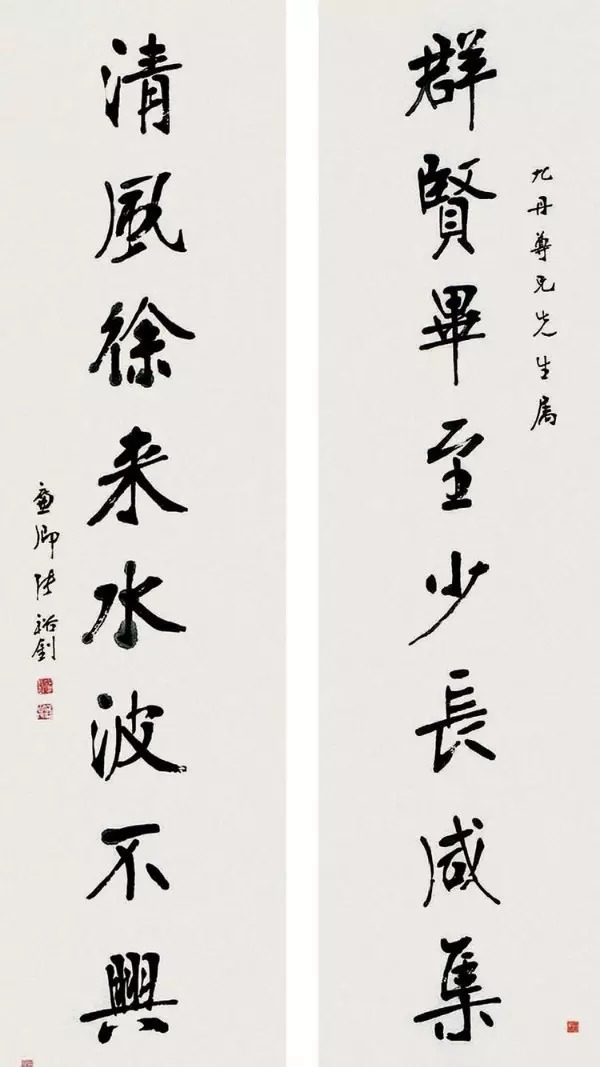 九丹尊兄先生属
群賢畢至少長咸集
清風徐来水波不興
廉卿張裕釗